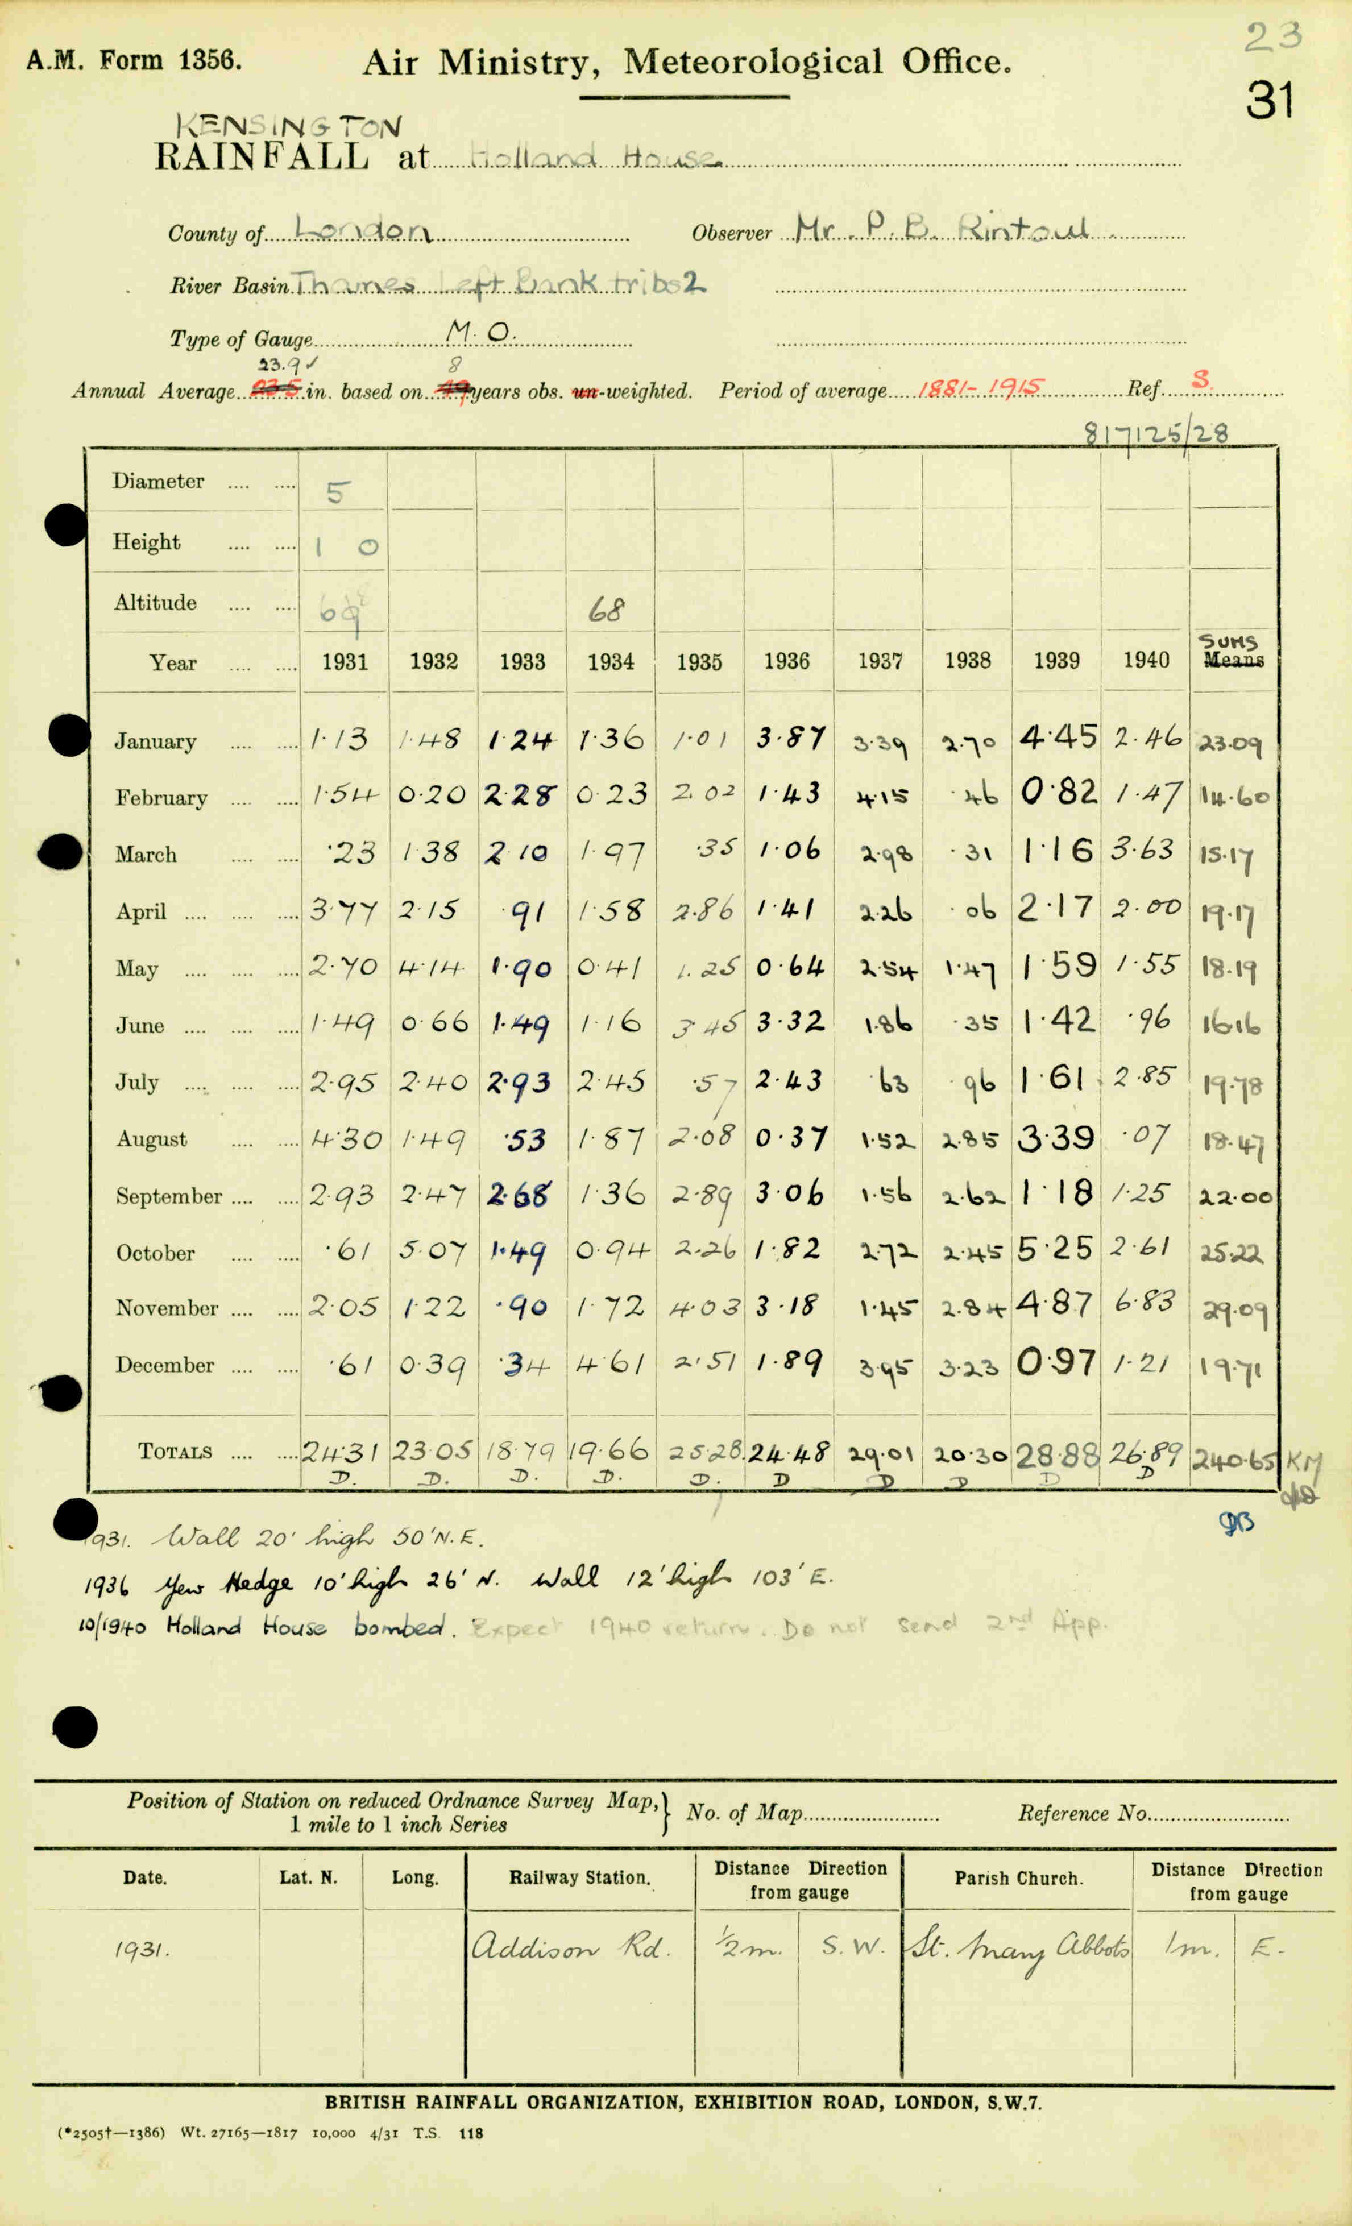 23
A.M. Form 1356. Air Ministry, Meteorological Office.
31
KENSINGTON
RAINFALL at Holland House
County of London Observer Mr. P. B. Rintoul.
River Basin Thames Left Bank tribs 2
Type of Gauge M. O.
23.9 8
Annual Average 23.5 in. based on 49 years obs. un-weighted. Period of average 1881-1915 Ref. S.
817125/28
Diameter .... .... 5
Height .... .... 1 0
Altitude .... .... 69 68
SUMS
Year .... .... 1931 1932 1933 1934 1935 1936 1937 1938 1939 1940 Means
January .... .... 1·13 1·48 1·24 1·36 1·01 3·87 3·39 2·70 4·45 2·46 23·09
February .... .... 1·54 0·20 2·28 0·23 2·02 1·43 4·15 ·46 0·82 1·47 14·60
March .... .... ·23 1·38 2·10 1·97 ·35 1·06 2·98 ·31 1·16 3·63 15·17
April .... .... .... 3·77 2·15 ·91 1·58 2·86 1·41 2·26 ·06 2·17 2·00 19·17
May .... .... .... 2·70 4·14 1·90 0·41 1·25 0·64 2·54 1·47 1·59 1·55 18·19
June .... .... .... 1·49 0·66 1·49 1·16 3·45 3·32 1·86 ·35 1·42 ·96 16·16
July .... .... .... 2·95 2·40 2·93 2·45 ·57 2·43 ·63 ·96 1·61 2·85 19·78
August .... .... 4·30 1·49 ·53 1·87 2·08 0·37 1·52 2·85 3·39 ·07 18·47
September .... .... 2·93 2·47 2·68 1·36 2·89 3·06 1·56 2·62 1·18 1·25 22·00
October .... .... ·61 5·07 1·49 0·94 2·26 1·82 2·72 2·45 5·25 2·61 25·22
November .... .... 2·05 1·22 ·90 1·72 4·03 3·18 1·45 2·84 4·87 6·83 29·09
December .... .... ·61 0·39 ·34 4·61 2·51 1·89 3·95 3·23 0·97 1·21 19·71
TOTALS .... .... 24·31 23·05 18·79 19·66 25·28 24·48 29·01 20·30 28·88 26·89 240·65 KM
D. D. D. D. D. D D D D D
1931. Wall 20' high 50' N.E.
1936 Yew Hedge 10' high 26' N. Wall 12' high 103' E.
10/1940 Holland House bombed. Expect 1940 return. Do not send 2nd App.
Position of Station on reduced Ordnance Survey Map, } No. of Map Reference No.
1 mile to 1 inch Series
Date. Lat. N. Long. Railway Station. Distance Direction from gauge Parish Church. Distance Direction from gauge
1931. Addison Rd. ½m. S.W. St. Mary Abbots 1m. E.
BRITISH RAINFALL ORGANIZATION, EXHIBITION ROAD, LONDON, S.W.7.
(*2505†—1386) Wt. 27165—1817 10,000 4/31 T.S. 118